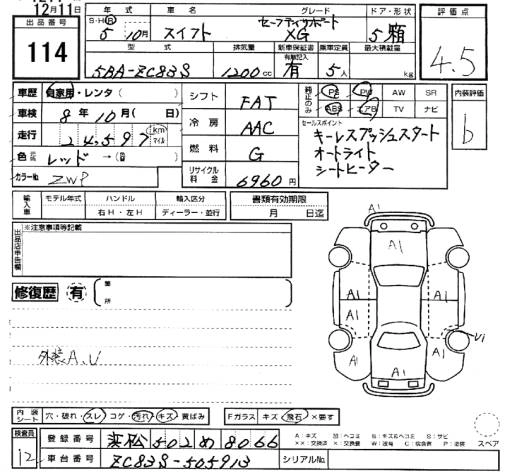 12月11日
出品番号
114
年式 車名 グレード ドア・形状
S・H・R 5年 10月 スイフト セーフティサポート XG 5 箱
型式 排気量 新車保証書 有無記入 乗車定員 最大積載量
5BA-ZC83S 1200cc 有 5人 kg
評価点
4.5
車歴 自家用・レンタ( )
車検 8年10月( 日)
走行 24,597 km マイル
色 レッド→( )
カラーNo. ZWP
シフト FAT
冷房 AAC
燃料 G
リサイクル料金 6960円
純正のみ PS PW AW SR
ABS エアB TV ナビ
セールスポイント
キーレスプッシュスタート
オートライト
シートヒーター
内装評価
b
輸入車 モデル年式 ハンドル 輸入区分
年 右H・左H ディーラー・並行
書類有効期限
月 日迄
出品店申告欄
※注意事項等記載
修復歴 有 箇所
外装A、U
A1
A1
A1
A1
A1
A1
A1
U1
内装シート 穴・破れ・スレ・コゲ・汚れ・キズ・黄ばみ
Fガラス キズ・飛石・×要す
検査員 12
登録番号 浜松502め8066
車台番号 ZC83S-505913
シリアルNo.
スペア